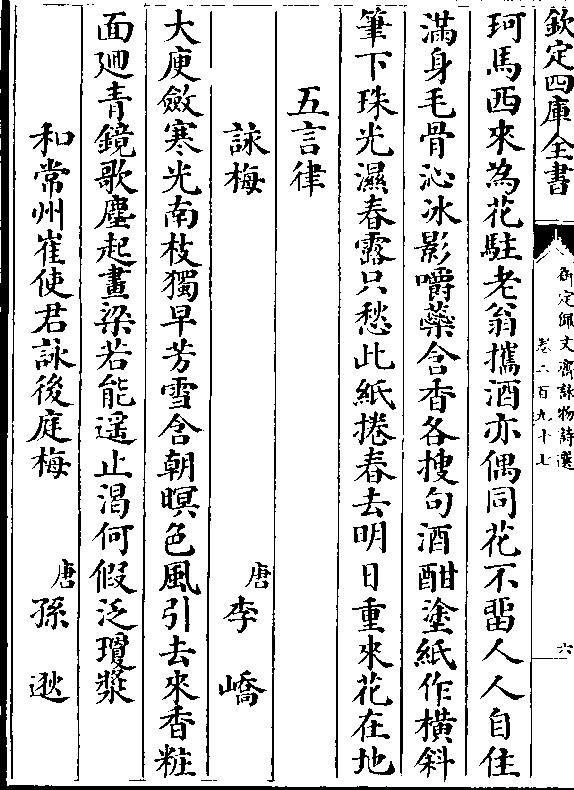 欽定四庫全書
御定佩文齋詠物詩選
卷二百九十七
六
珂馬西來為花駐老翁攜酒亦偶同花不畱人人自住
滿身毛骨沁冰影嚼蘂含香各搜句酒酣塗紙作橫斜
筆下珠光濕春露只愁此紙捲春去明日重來花在地
五言律
詠梅 唐 李嶠
大庾斂寒光南枝獨早芳雪含朝暝色風引去來香粧
面廻青鏡歌塵起畫梁若能遥止渴何假泛瓊漿
和常州崔使君詠後庭梅 唐 孫逖